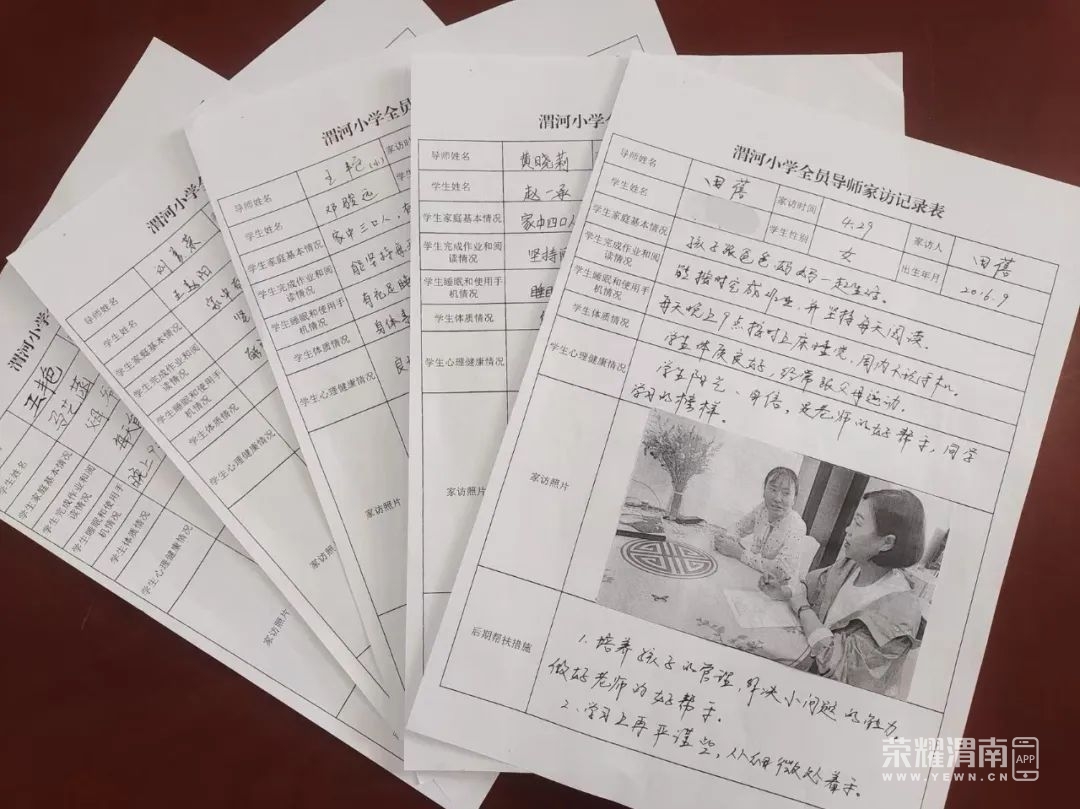 渭河小学全员导师家访记录表
导师姓名 田蓓 家访时间 4.29 家访人 田蓓
学生姓名 学生性别 女 出生年月 2016.9
学生家庭基本情况 孩子跟爸爸妈妈一起生活。
学生完成作业和阅读情况 能按时完成作业,并坚持每天阅读。
学生睡眠和使用手机情况 每天晚上9点按时上床睡觉,周内不玩手机。
学生体质情况 学生体质良好,经常跟父母运动。
学生心理健康情况 学生阳光、自信,是老师的好帮手,同学
学习的榜样。
家访照片
后期帮扶措施
1.培养孩子的管理,解决小问题的能力,
做好老师的好帮手。
2.学习上再严谨些,从细微处着手。
渭河小学全
导师姓名 黄晓莉
学生姓名 赵一承
学生家庭基本情况 家中四口人
学生完成作业和阅读情况 坚持
学生睡眠和使用手机情况 睡眠
学生体质情况
学生心理健康情况
家访照片
渭河小学全员
导师姓名 王艳(小) 家访时
学生姓名 邓骏远 学生
学生家庭基本情况 家中三口人,
学生完成作业和阅读情况 能坚持每天
学生睡眠和使用手机情况 有充足睡
学生体质情况 身体
学生心理健康情况 良
家访照片
渭河小学全
导师姓名
学生姓名
学生家庭基本情况
学生完成作业和阅读情况
学生睡眠和使用手机情况
学生体质情况
学生心理健康情况
家访照片
渭河小学
王艳
学生姓名
学生家庭基本情况
学生完成作业和阅读情况 每天
学生睡眠和使用手机情况 晚上9
学生体质情况
学生心理健康情况
家访照片
荣耀渭南 APP
WWW.YEWN.CN